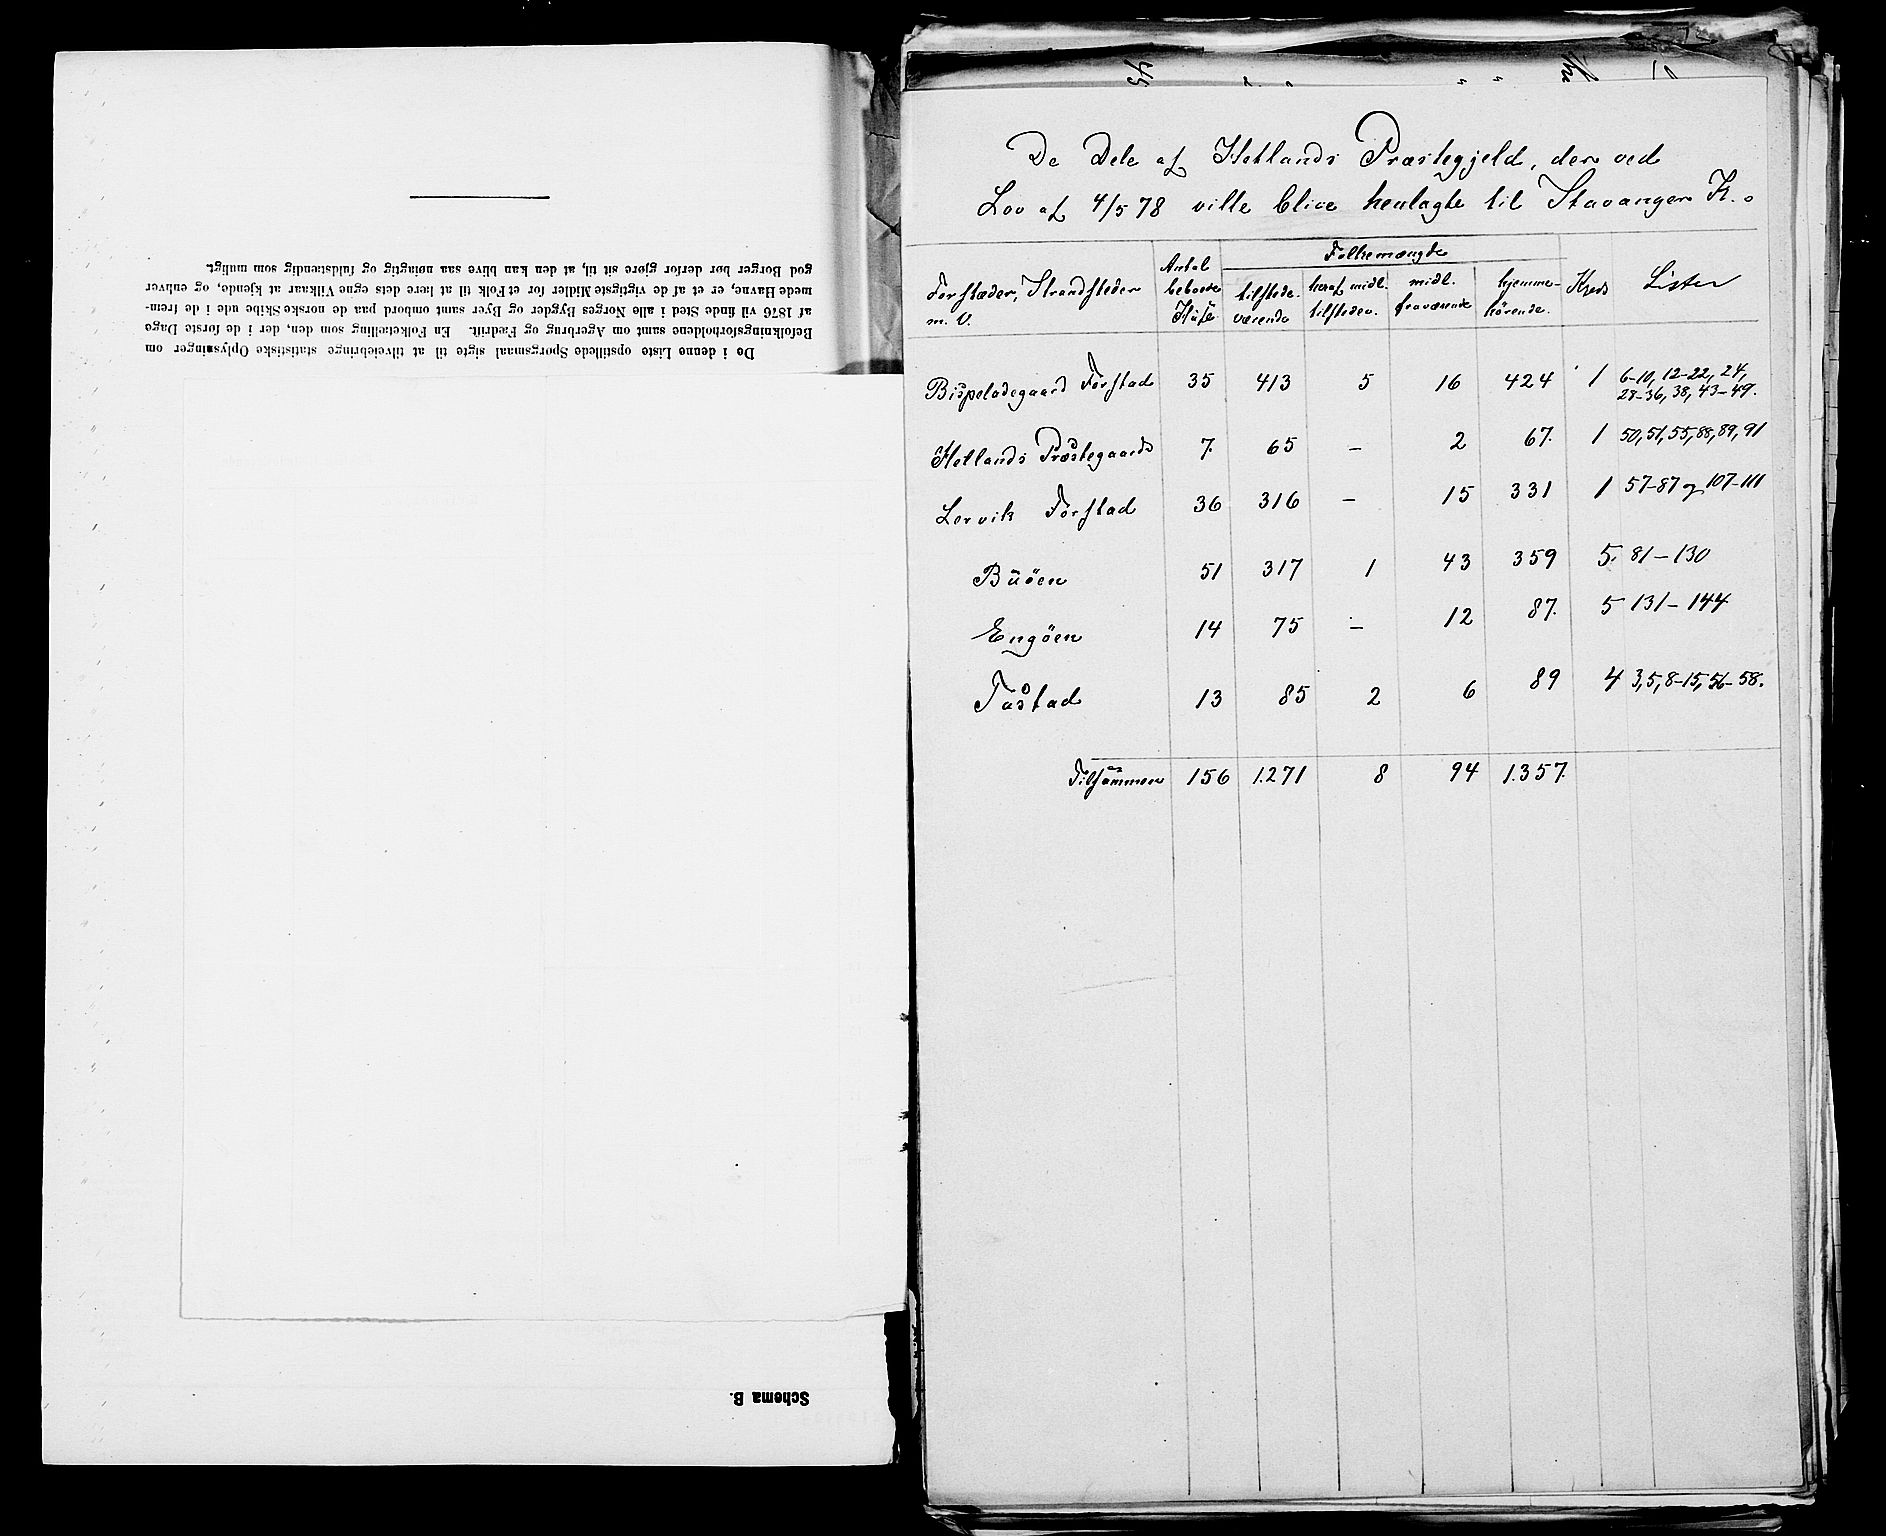 De i denne Liste opstillede Spørgsmaal sigte til at tilveiebringe statistiske Oplysninger om
Befolkningsforholdene samt om Agerbrug og Fædrift. En Folketælling som den, der i de første Dage
af 1876 vil finde Sted i alle Norges Bygder og Byer samt ombord paa de norske Skibe ude i de frem-
mede Havne, er et af de vigtigste Midler for et Folk til at lære dets egne Vilkaar at kjende, og enhver
god Borger bør derfor gjøre sit til, at den kan blive saa nøiagtig og fuldstændig som muligt.
Schema B.
De Dele af Hetlands Præstegjeld, der ved
Lov af 4/5 78 ville blive henlagte til Stavanger K.
Forstæder, Strandsteder m. V. | Antal beboede Huse | Folkemængde | Kreds | Lister
tilstede-værende | heraf midl. tilstedev. | midl. fraværende | hjemme-hørende.
Bispeladegaard Forstad 35 413 5 16 424 1 6-10, 12-22, 24, 
28-36, 38, 43-49.
Hetlands Præstegaards 7. 65 - 2 67. 1 50, 51, 55, 88, 89, 91
Lervik Forstad 36 316 - 15 331 1 57-87 og 107-111
Buöen 51 317 1 43 359 5. 81-130
Engöen 14 75 - 12 87. 5 131-144
Tastad 13 85 2 6 89 4 3, 5, 8-15, 56-58.
Tilsammen 156 1.271 8 94 1.357.